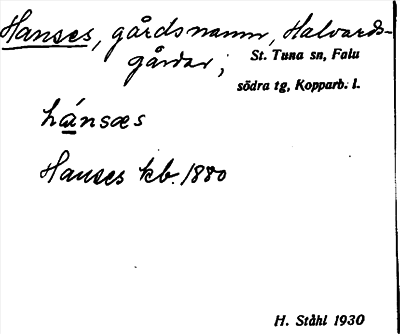 Hanses, gårdsnamn, Halvards-
gårdar;
St. Tuna sn, Falu
södra tg, Kopparb. l.
hánsæs
Hanses kb. 1880
H. Ståhl 1930